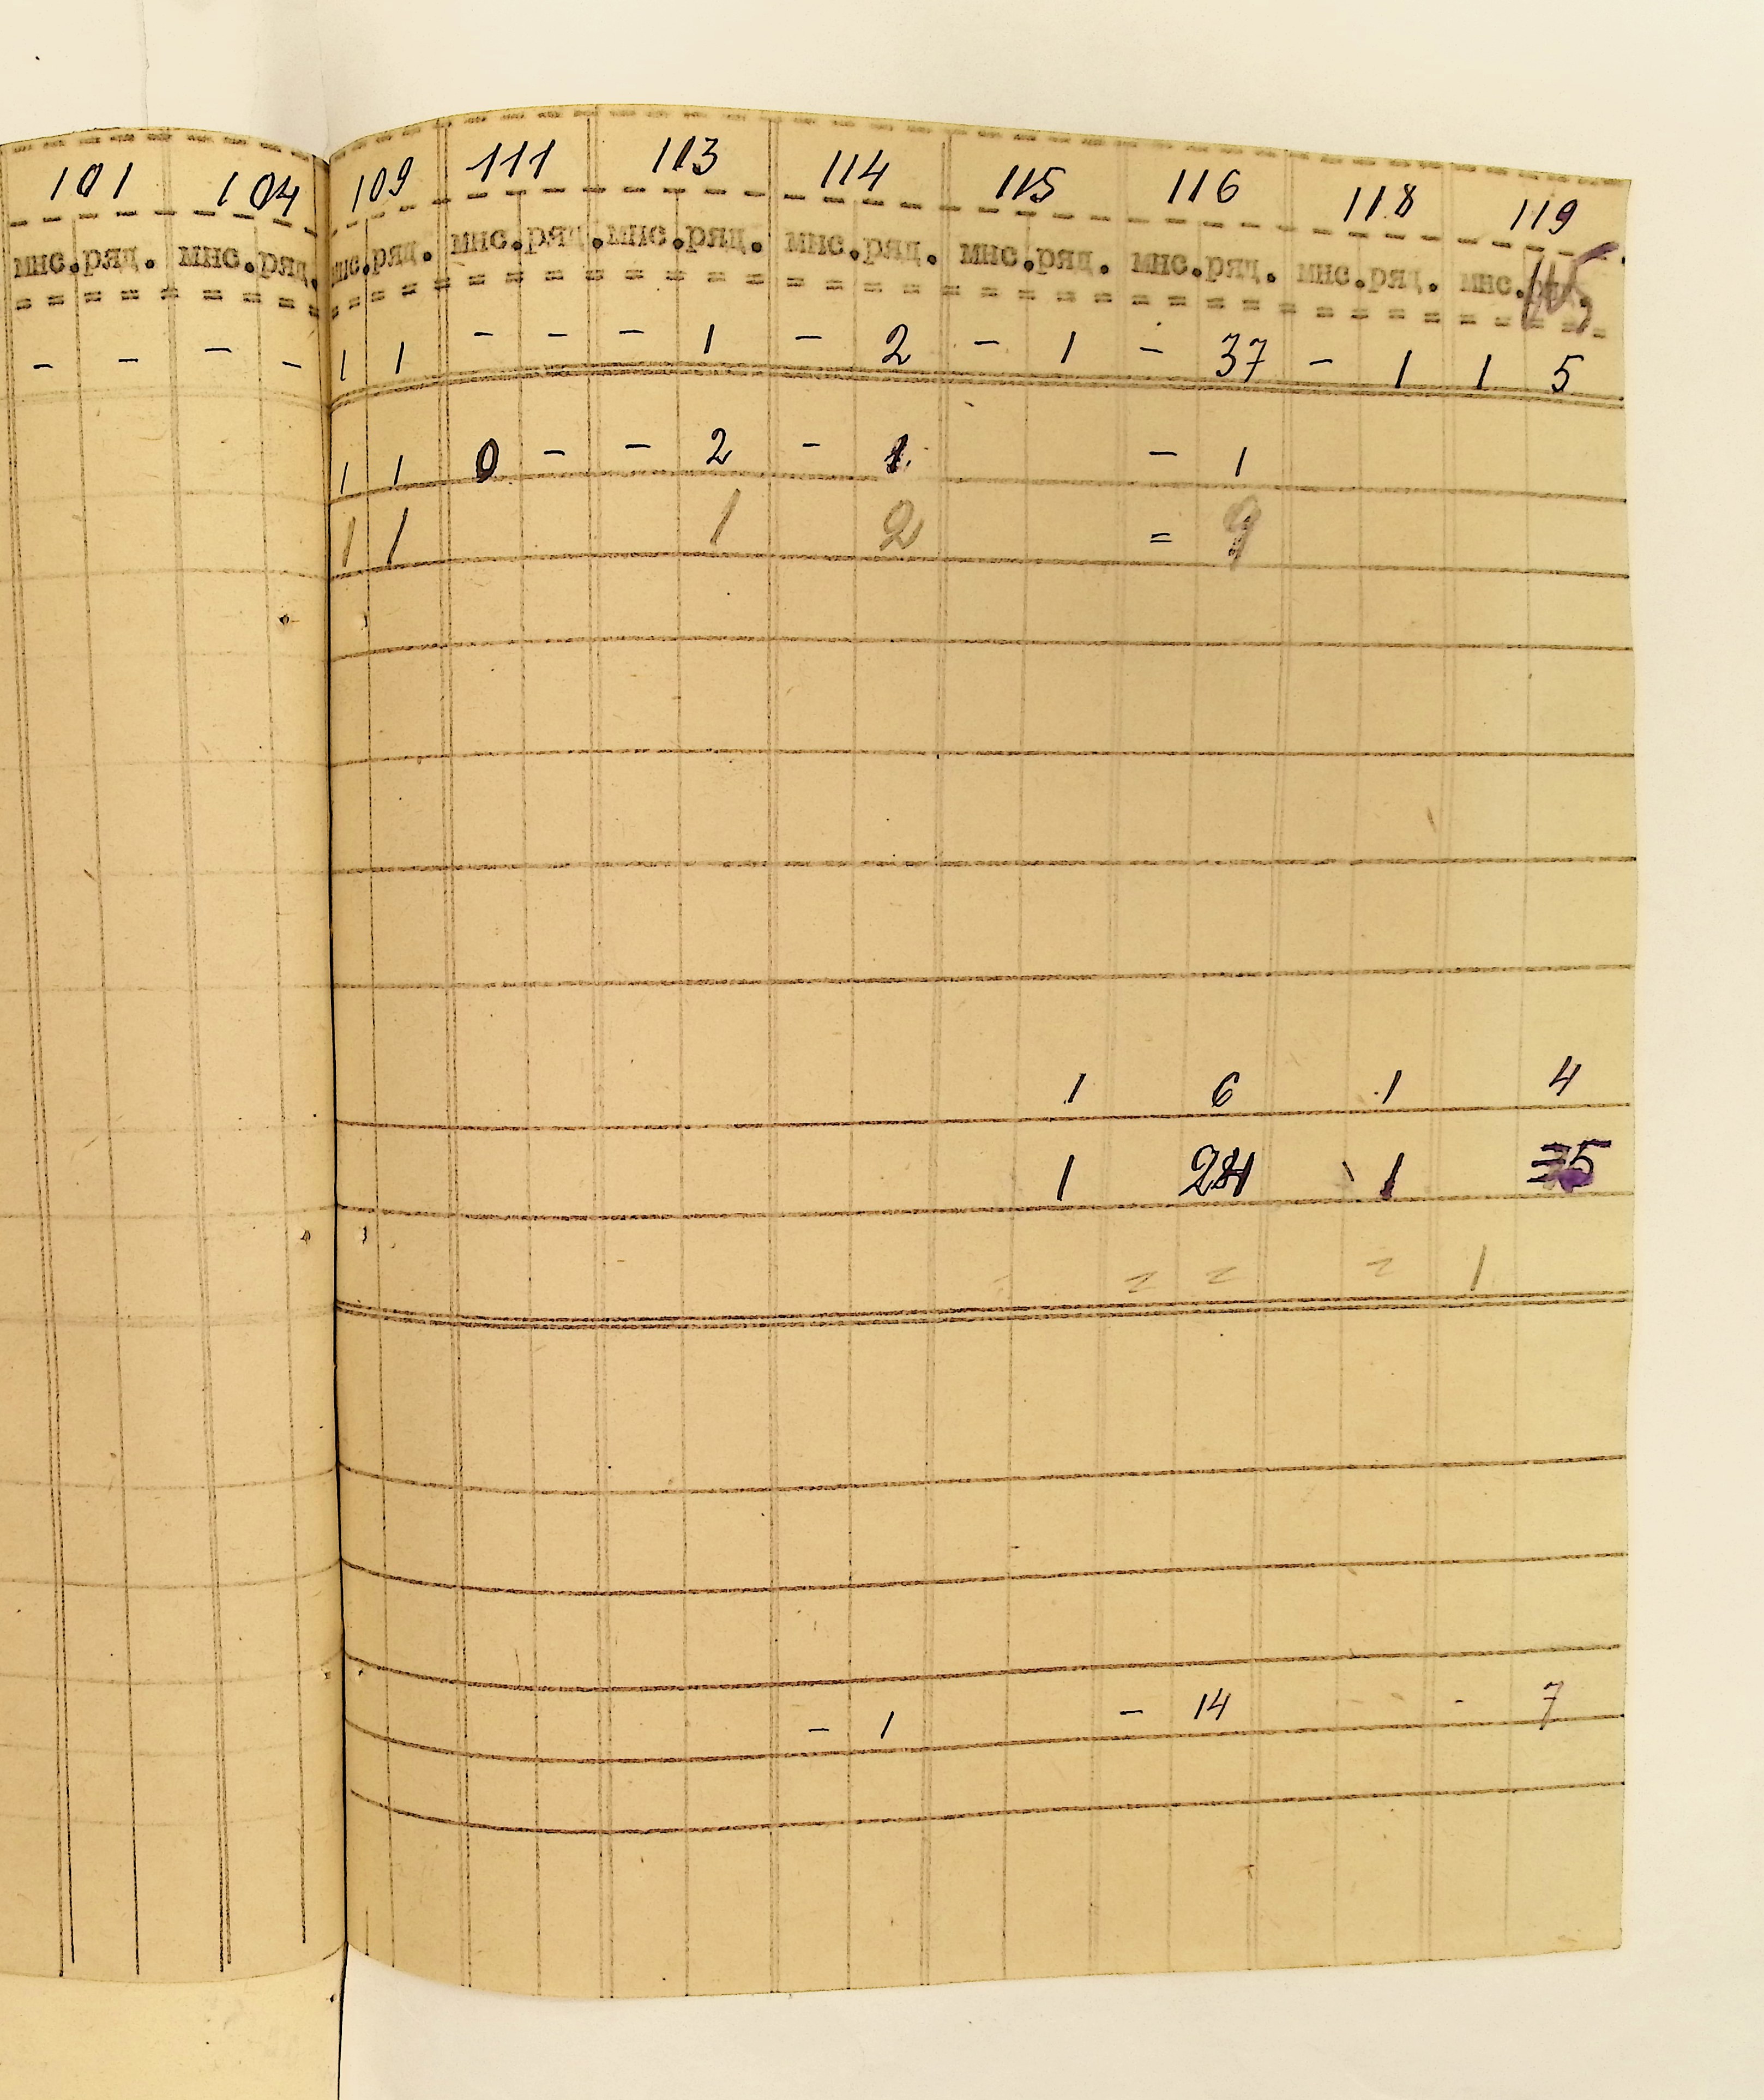 101 104 109 111 113 114 115 116 118 119
мнс. ряд. мнс. ряд. мнс. ряд. мнс. ряд. мнс. ряд. мнс. ряд. мнс. ряд. мнс. ряд. мнс. ряд. мнс.
- - - - 1 1 - - - 1 - 2 - 1 - 37 - 1 1 5
1 1 0 - - 2 - 1 - 1
1 1 1 2 = 9
1 6 1 4
1 24 1 5
= = = 1
- 1 - 14 - 7